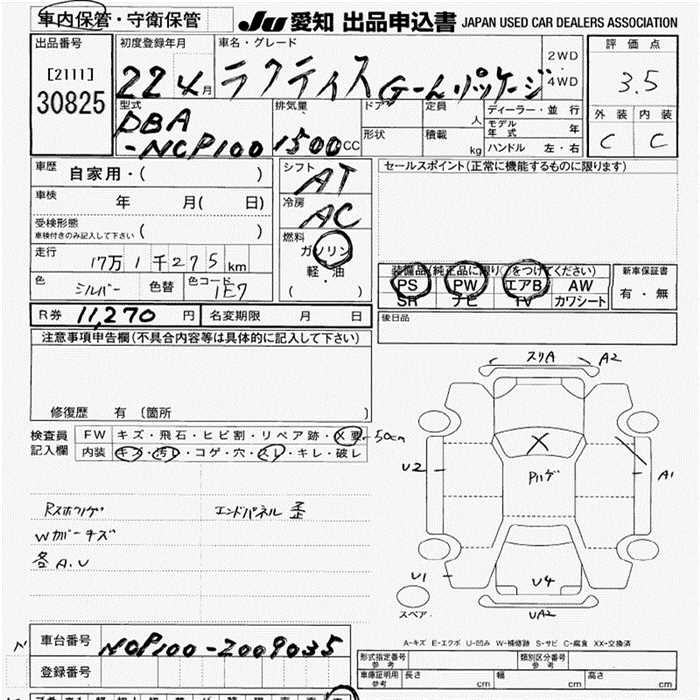 車内保管・守衛保管
JU 愛知 出品申込書 JAPAN USED CAR DEALERS ASSOCIATION
出品番号
[2111]
30825
初度登録年月
22 4月
車名・グレード
ラクティス G-Lパッケージ
2WD
・
4WD
評価点
3.5
外装 内装
C C
型式
DBA
-NCP100
排気量
1500CC
ドア
形状
定員 人
積載 kg
ディーラー・並行
モデル年式 年
ハンドル 左・右
車歴 自家用・( )
車検 年 月( 日)
受検形態
車検付きのみ記入して下さい ( )
走行 17万1千275km
色 シルバー 色替 色コード 1E7
シフト AT
冷房 AC
燃料
ガソリン
軽・油
( )
セールスポイント(正常に機能するものに限ります)
装備品(純正品に限り○をつけてください)
PS PW エアB AW
SR ナビ TV カワシート
新車保証書
有・無
R券 11,270 円 名変期限 月 日
後日品
注意事項申告欄(不具合内容等は具体的に記入して下さい)
修復歴 有 〔箇所 〕
検査員
記入欄
FW キズ・飛石・ヒビ割・リペア跡・X要 50cm
内装 キズ・汚レ・コゲ・穴・スレ・キレ・破レ
Rスホハゲ エンドパネル歪
Wカバーキズ
各A.U
スリA A2
X
Pハゲ
U2
A1
U1
U4
UA2
スペア
A-キズ E-エクボ U-凹み W-補修跡 S-サビ C-腐食 XX-交換済
車台番号 NCP100-2009035
登録番号
形式指定番号
参考
類別区分番号
参考
車庫証明用
参考
長さ cm 幅 cm 高さ cm